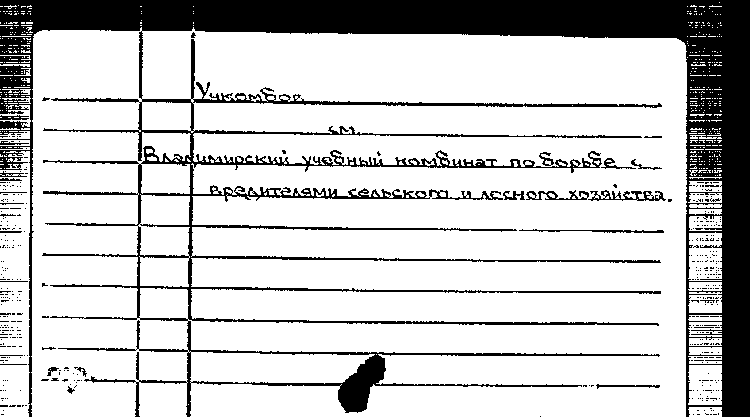 Учкомбов.
см.
Владимирский учебный комбинат по борьбе с
вредителями сельского и лесного хозяйства.